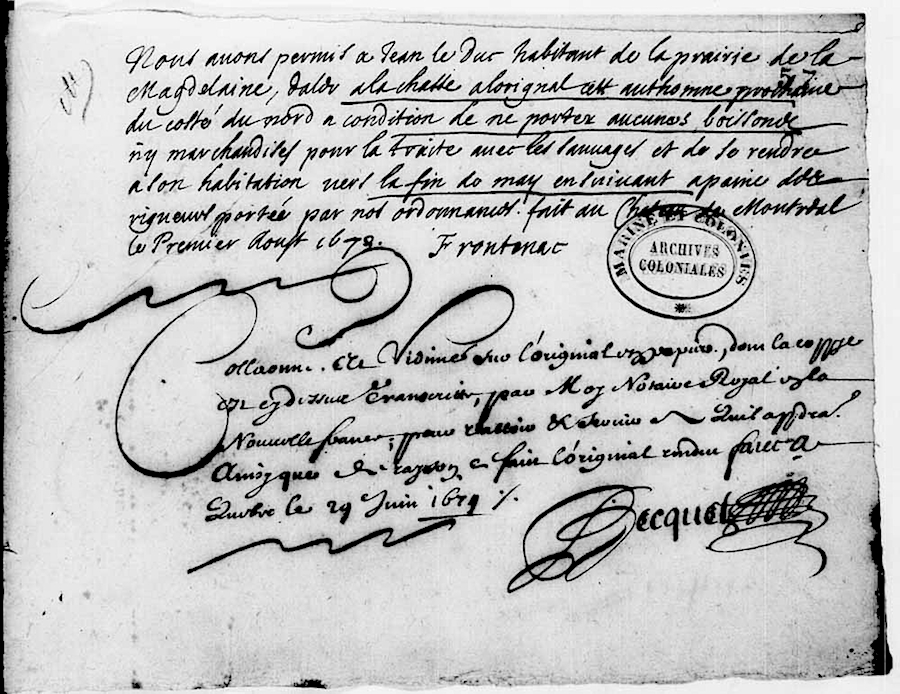 Nous auons permis a Jean le Duc habitant de la prairie de la
Magdelaine, daler ala chasse alorignal cett authomne prochaine
du costé du nord a condition de ne porter aucunes boissons
ny marchandises pour la traite auec les sauuages et de se rendre
a son habitation vers la fin de may ensuiuant apaine des
rigueurs portée par nos ordonnances. fait au Chateau de Montréal
le Premier Aoust 1678. Frontenac
MARINE ET COLONIES
ARCHIVES
COLONIALES
Collaonné Et Vidimé sur l'original en papier, dont la coppie
Est cy dessus Transcritte, par Moy Notaire Royal en la
Nouuelle france; pour & seruir Quil appdra.
Ainsy que de rayson Ce fait l'original rendu faict a
Quebec le 29 Juin 1679
Becquet